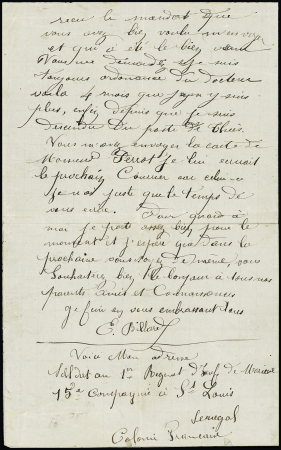 recu le mandat que
vous avez bien voulu m'envoyer
et qui a été le bien venu
Vous me demandez si je suis
toujours ordonnance du docteur
voila 4 mois que j'y suis
plus, enfin depuis que je suis
descendu du poste de Thiès.
Vous m'avez envoyer la carte de
Monsieur Perrot je l'en
le prochain Courrier car celui ci
je n'ai juste que le temps de
vous ecrire. Pour quand à
moi je porte assez bien pour le
moment et j'espère que dans la
prochaine vous de même, vous
Souhaiterez bien le bonjour à tous nos
parents Amis et Connaissances
je fini en vous embrassant tous
E. Billard
Voici Mon adresse
Soldat au 1er Regiment d'Inf de Marine
15e Compagnie à St Louis
Senegal
Colonie Francaise